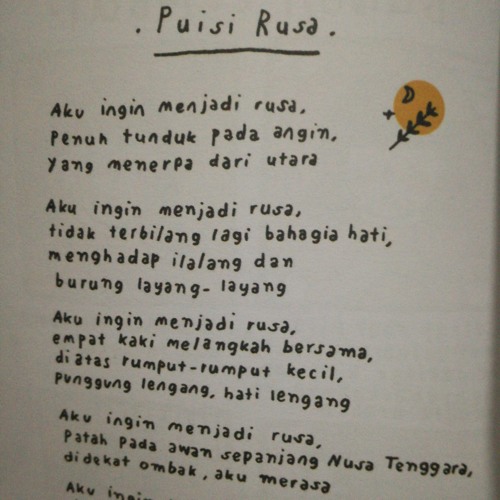 . Puisi Rusa.
Aku ingin menjadi rusa,
Penuh tunduk pada angin,
yang menerpa dari utara
Aku ingin menjadi rusa,
tidak terbilang lagi bahagia hati,
menghadap ilalang dan
burung layang-layang
Aku ingin menjadi rusa,
empat kaki melangkah bersama,
diatas rumput-rumput kecil,
Punggung lengang, hati lengang
Aku ingin menjadi rusa,
Patah pada awan sepanjang Nusa Tenggara,
didekat ombak, aku merasa
Aku ingin